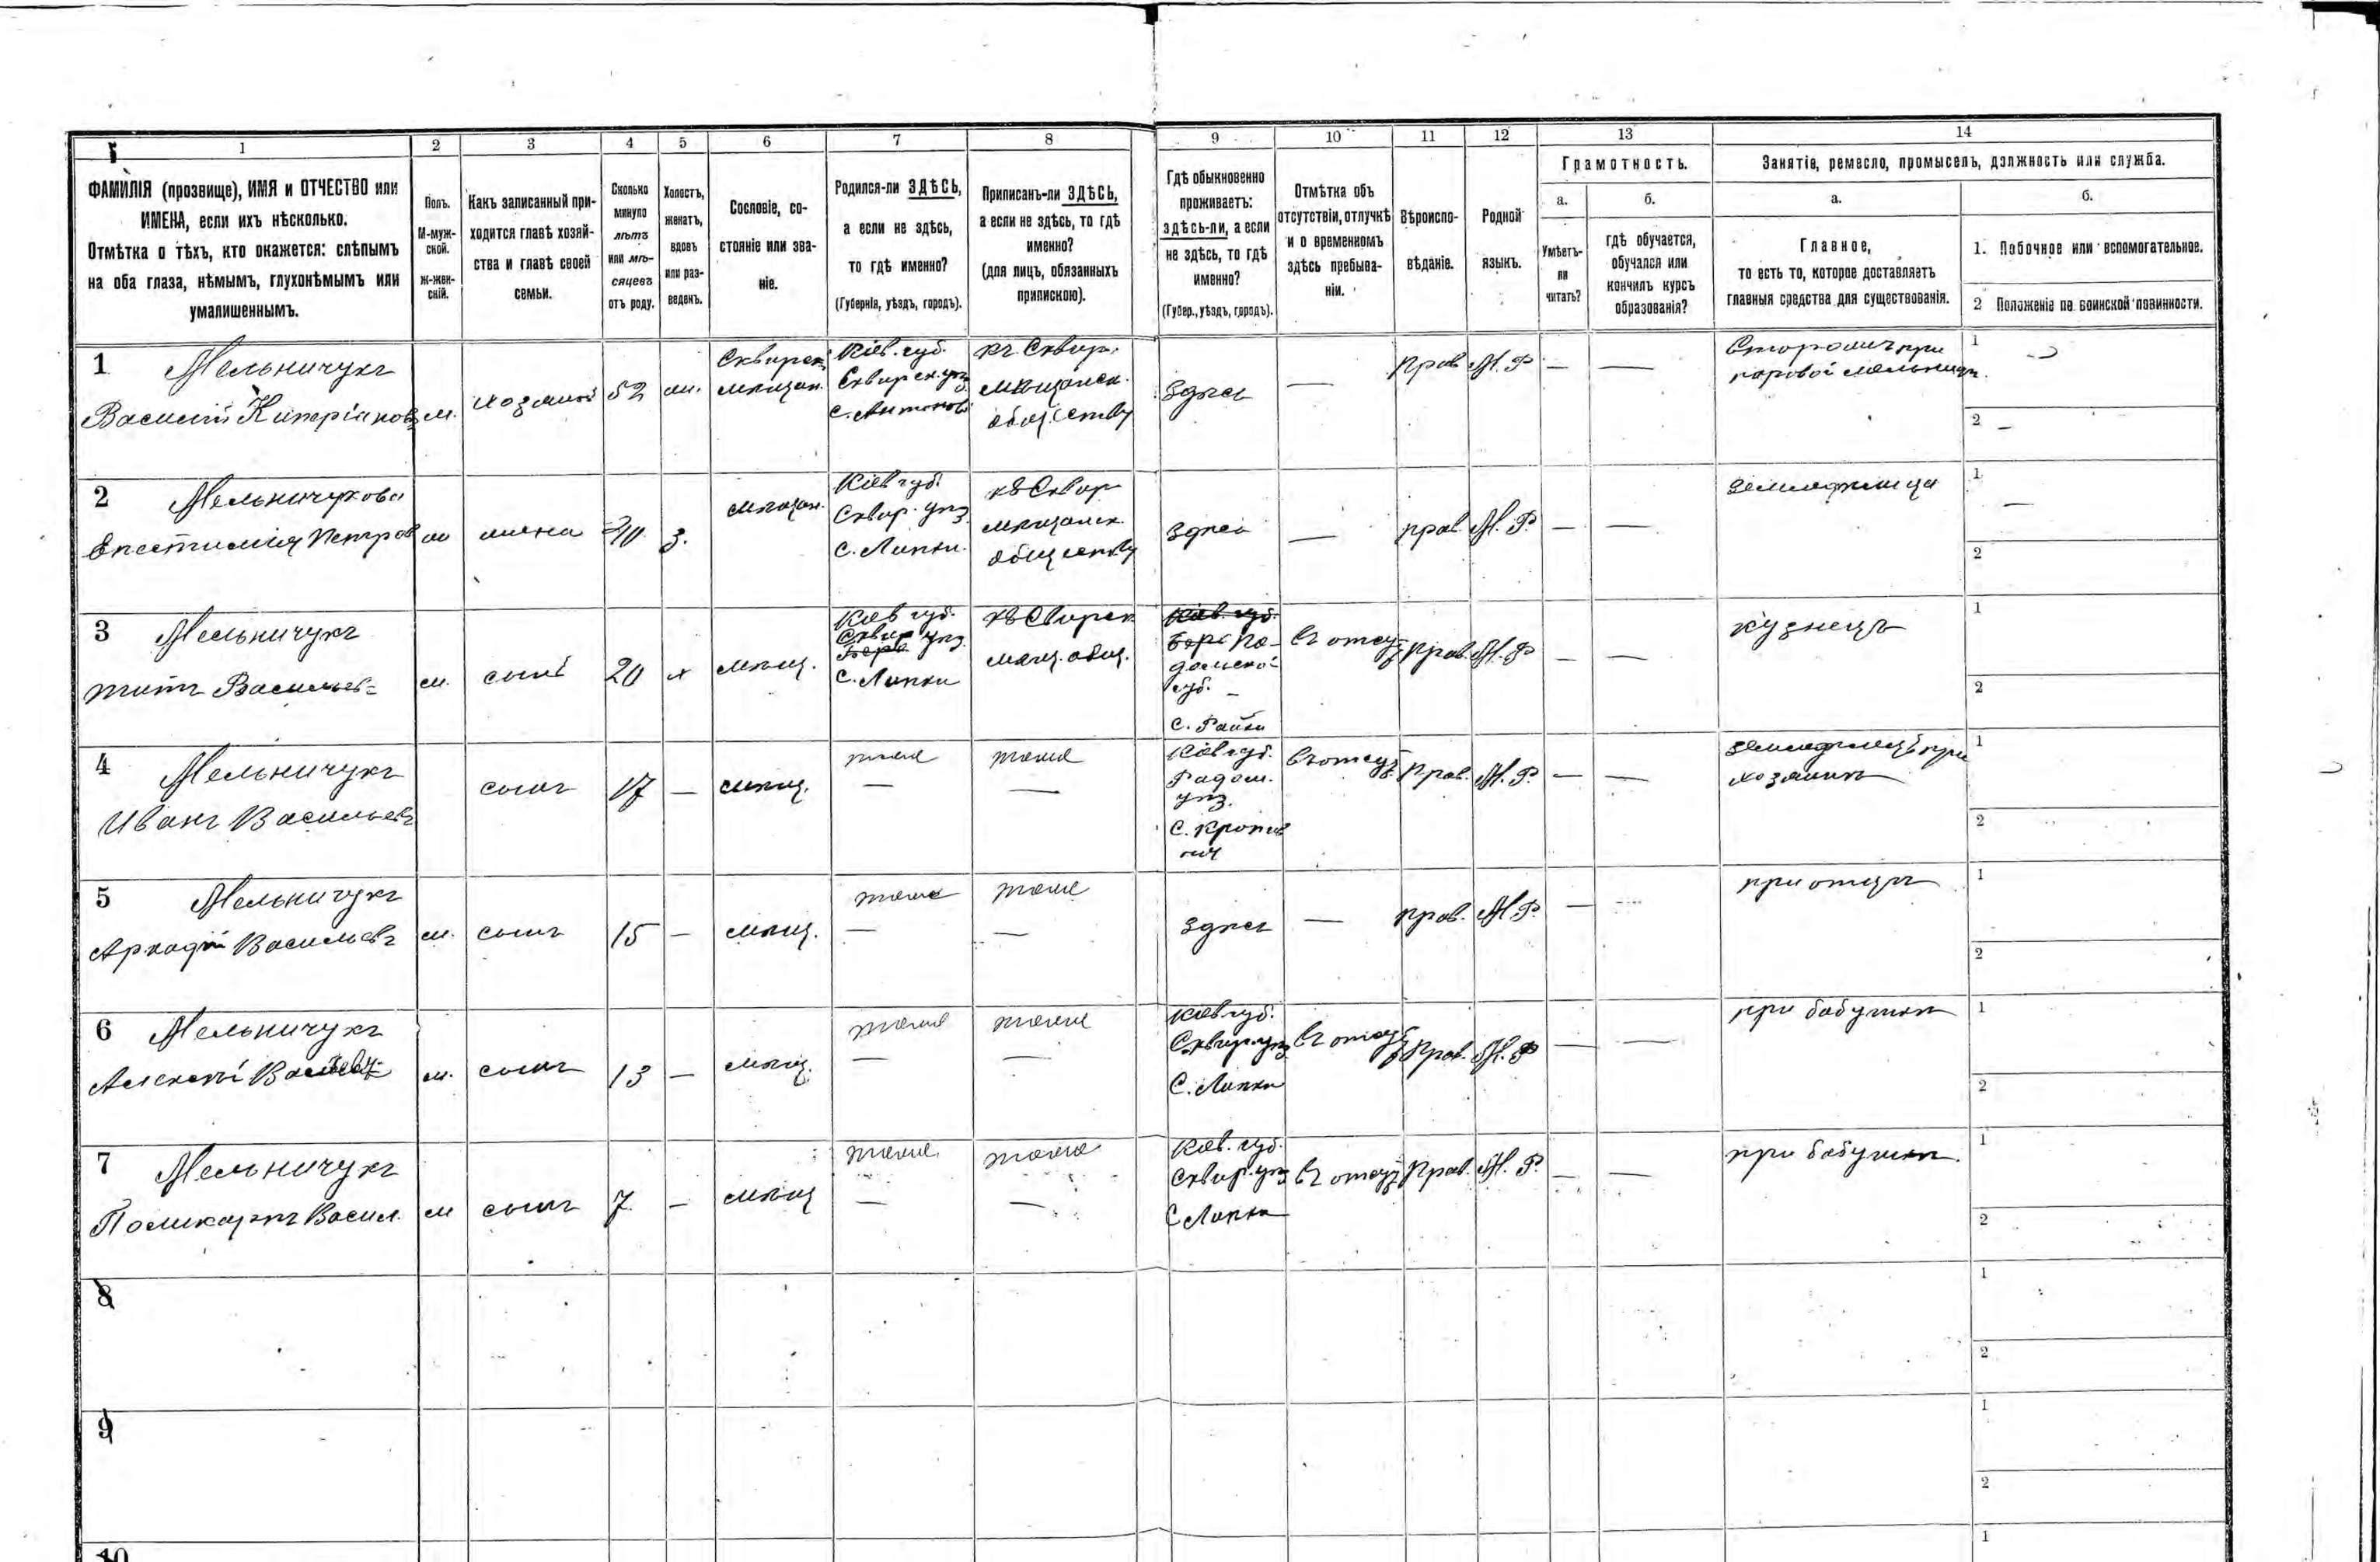 1 2 3 4 5 6 7 8 9 10 11 12 13 14
ФАМИЛІЯ (прозвище), ИМЯ и ОТЧЕСТВО или
ИМЕНА, если ихъ нѣсколько.
Отмѣтка о тѣхъ, кто окажется: слѣпымъ
на оба глаза, нѣмымъ, глухонѣмымъ или
умалишеннымъ.
Полъ.
М-муж-
ской.
Ж-жен-
скій.
Какъ записанный при-
ходится главѣ хозяй-
ства и главѣ своей
семьи.
Сколько
минуло
лѣтъ
или мѣ-
сяцевъ
отъ роду.
Холостъ,
женатъ,
вдовъ
или раз-
веденъ.
Сословіе, со-
стояніе или зва-
ніе.
Родился-ли ЗДѢСЬ,
а если не здѣсь,
то гдѣ именно?
(Губернія, уѣздъ, городъ).
Приписанъ-ли ЗДѢСЬ,
а если не здѣсь, то гдѣ
именно?
(для лицъ, обязанныхъ
припискою).
Гдѣ обыкновенно
проживаетъ:
здѣсь-ли, а если
не здѣсь, то гдѣ
именно?
(Губер., уѣздъ, городъ).
Отмѣтка объ
отсутствіи, отлучкѣ
и о временномъ
здѣсь пребыва-
ніи.
Вѣроиспо-
вѣданіе.
Родной
языкъ.
Грамотность.
а.
Умѣетъ-
ли
читать?
б.
гдѣ обучается,
обучался или
кончилъ курсъ
образованія?
Занятіе, ремесло, промыселъ, должность или служба.
а.
Главное,
то есть то, которое доставляетъ
главныя средства для существованія.
б.
1. Побочное или вспомогательное.
2 Положеніе по воинской повинности.
1 Мельничукъ
Василій Кипріановъ
м.
хозяинъ
52
ж.
Сквирск.
мѣщан.
Кіев. губ.
Сквирск. уѣз.
с. Антоновъ
къ Сквир.
мѣщанск.
обществу
здѣсь
—
Прав
М. Р.
—
—
Сторожъ при
паровой мельницѣ.
1
2 —
2 Мельничукова
Епестимія Петров
ж
жена
40
з.
мѣщан.
Кіев губ.
Сквир. уѣз.
с. Липки.
къ Сквир
мѣщанск.
обществу
здѣсь
—
прав.
М. Р.
—
—
1
—
2
3 Мельничукъ
Титъ Васильевъ
м.
сынъ
20
х
мѣщ.
Кіев губ.
Сквир уѣз.
с. Липки
къ Сквирск
мѣщ. общ.
Кіев. губ.
По-
дольской
губ. —
с. Райки
въ отсут
Прав.
М. Р.
—
—
кузнецъ
1
2
4 Мельничукъ
Иванъ Васильевъ
сынъ
17
—
мѣщ.
тоже
—
тоже
—
Кіев губ.
Радом.
уѣз.
въ отсут
Прав.
М. Р.
—
—
при
хозяинѣ
1
2
5 Мельничукъ
Аркадій Васильевъ
м.
сынъ
15
—
мѣщ.
тоже
—
тоже
—
здѣсь
—
прав.
М. Р.
—
—
при отцѣ
1
2
6 Мельничукъ
Алексѣй
м.
сынъ
13
—
мѣщ.
тоже
—
тоже
—
Кіев губ.
Сквир. уѣз
с. Липки
въ отсут
Прав.
М. Р.
—
—
при бабушкѣ
1
2
7 Мельничукъ
Поликарпъ Васил.
м
сынъ
7.
—
мѣщ
тоже
—
тоже
—
Кіев. губ.
Сквир. уѣз
с Липки
въ отсут
Прав.
М. Р.
—
—
при бабушкѣ.
1
2
8
1
2
9
1
2
10
1